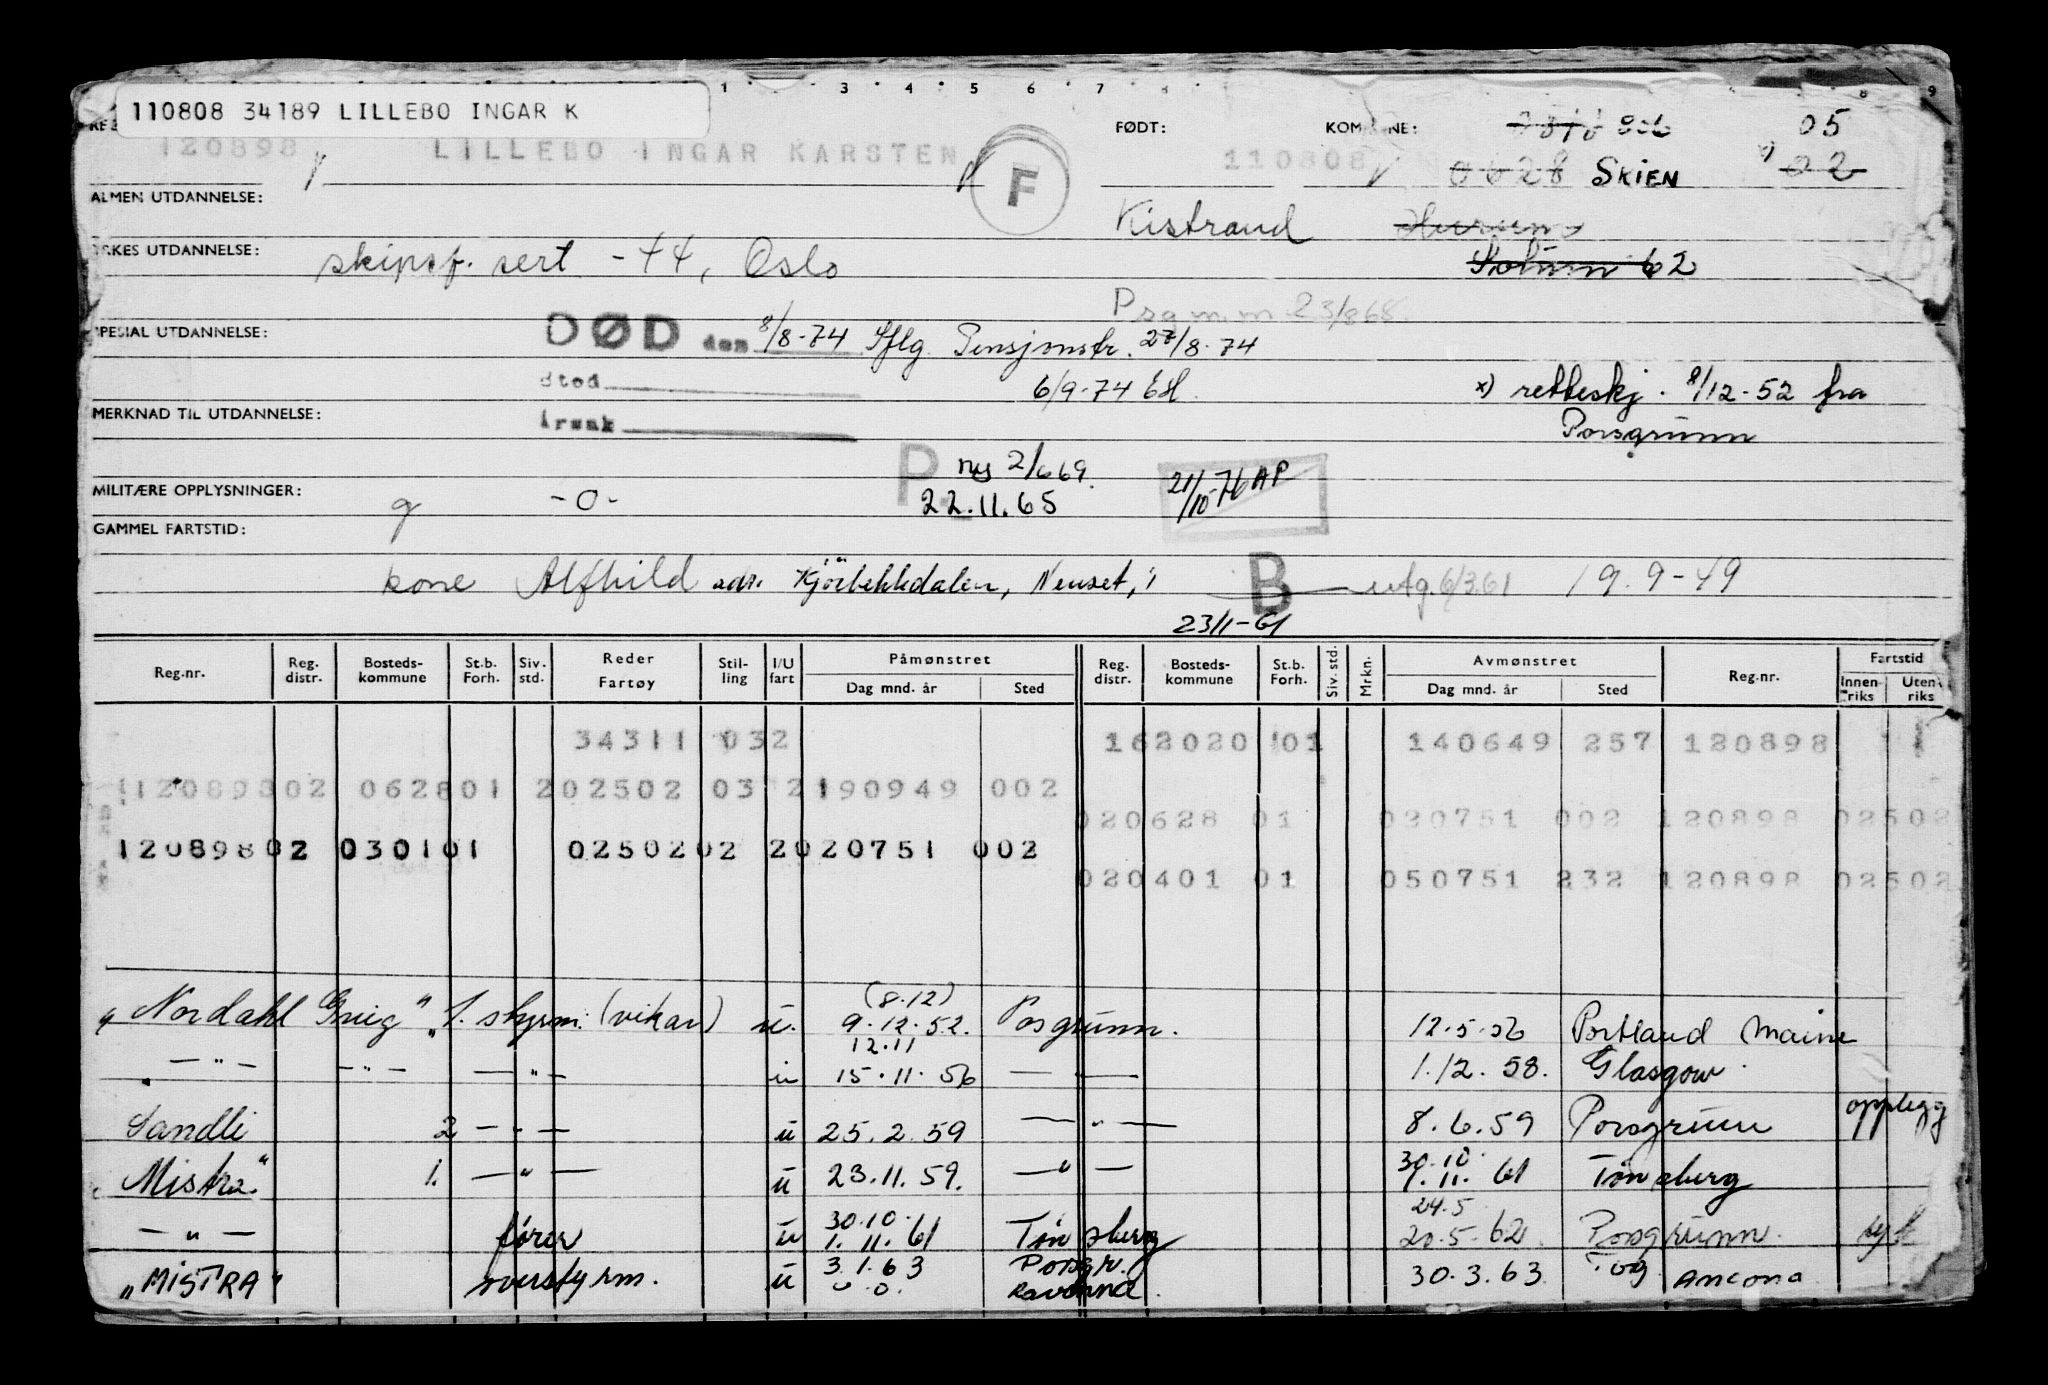 110808 34189 LILLEBO INGAR K
1 3 4 5 6 7 8 8 9
FØDT: KOMMUNE: 806 05
120898 LILLEBO INGAR KARSTEN F 110808 0628 SKIEN x) 02
ALMEN UTDANNELSE:
Kistrand Hurum
YRKES UTDANNELSE: skipsf. sert -44, Oslo Solum 62
Psgr.m.m 23/868.
SPESIAL UTDANNELSE: DØD den 8/8-74 Iflg. Pensjonstr. 27/8-74
Sted 6/9-74 EH. x) retteskj. 8/12-52 fra
MERKNAD TIL UTDANNELSE: Årsak Porsgrunn
P. ny 2/669. 21/10-76 AP
MILITÆRE OPPLYSNINGER: g -0- 22.11.65
GAMMEL FARTSTID:
kone Alfhild adr. Kjörbekkdalen, Nenset, B utg. 6/3.61 19.9-49
23/1-61
Reg.nr. Reg. distr. Bosteds- kommune St.b. Forh. Siv. std. Reder Fartøy Stil- ling I/U fart Påmønstret Dag mnd. år Sted Reg. distr. Bosteds- kommune St.b. Forh. Siv. std. Mrkn. Avmønstret Dag mnd. år Sted Reg.nr. Fartstid Innen- riks Uten- riks
34311 032 162020 101 140649 257 120898
112089802 062801 202502 03 2190949 002
020628 01 020751 002 120898 02502
12089802 030101 02502 02 2020751 002
020401 01 050751 232 120898 02502
"Nordahl Grieg" 1. styrm. (vikar) u. (8.12) 9.12.52. Porsgrunn. 12.5.56 Portland Maine
— " — — " — — " — u 12.11 15.11.56 — " — 1.12.58. Glasgow.
Sandli 2 — " — u 25.2.59 — " — 8.6.59 Porsgrunn opplegg
"Mistra" 1. — " — u 23.11.59. — " — 30.10. 1.11.61 Tönsberg
— " — fører u 30.10. 1.11.61 Tönsberg 24.5 20.5.62. Porsgrunn. syk
"MISTRA" overstyrm. u 3.1.63 Porsgr. Ravenna. 30.3.63. Ancona